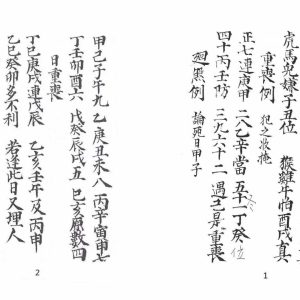 虎馬兎嫌子丑位 猴雞年怕酉戌真
重喪例 犯之收掩
正七連庚甲 二八乙辛當 五十一丁癸位
四十丙壬防 三九六十二 遇己是重喪
例 論死日甲子
1
甲己子午九 乙庚丑未八 丙辛寅申七
丁壬卯酉六 戊癸辰戌五 巳亥原數四
日重喪
丁巳庚戌連戊辰 乙亥壬午及丙申
乙巳癸卯多不利 若逢此日又埋人
2